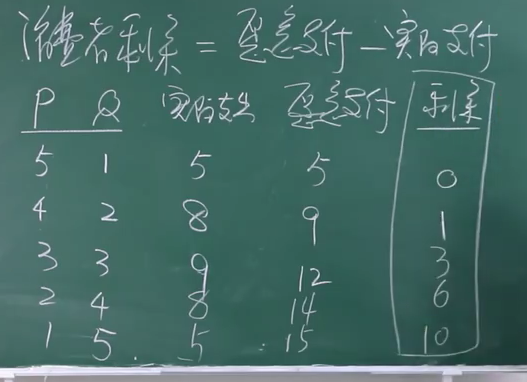 消費者剩餘 = 愿意支付 - 实际支付
P Q 实际支出 愿意支付 剩餘
5 1 5 5 0
4 2 8 9 1
3 3 9 12 3
2 4 8 14 6
1 5 5 15 10